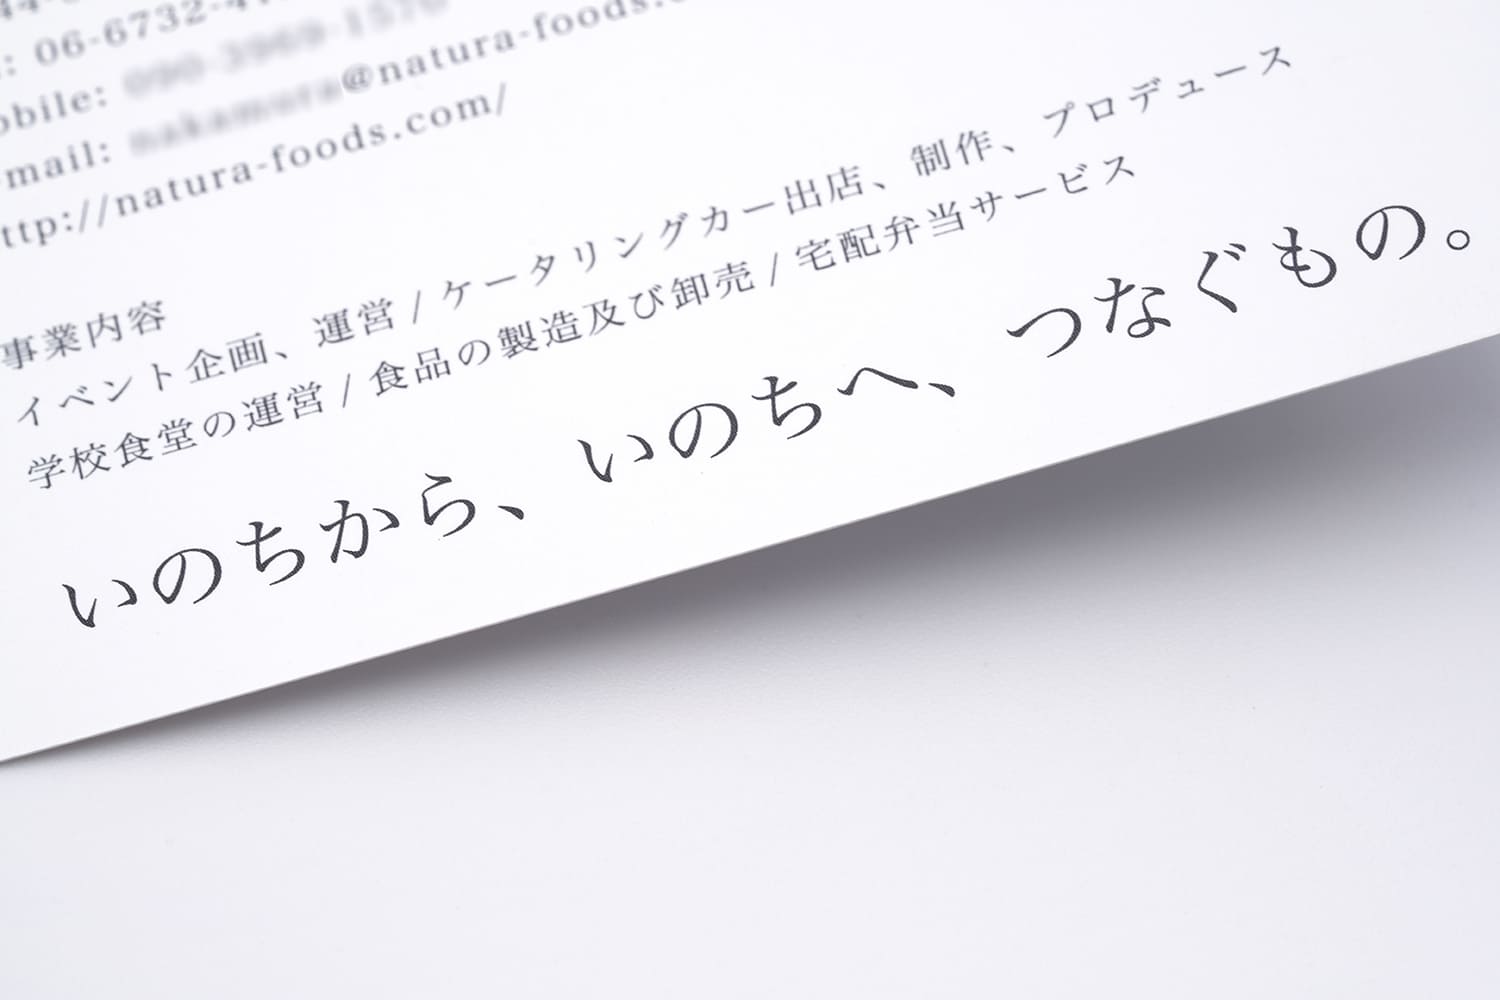 : 06-6732-4
obile:
mail: @natura-foods.
ttp://natura-foods.com/
事業内容
イベント企画、運営 / ケータリングカー出店、制作、プロデュース
学校食堂の運営 / 食品の製造及び卸売 / 宅配弁当サービス
いのちから、いのちへ、つなぐもの。